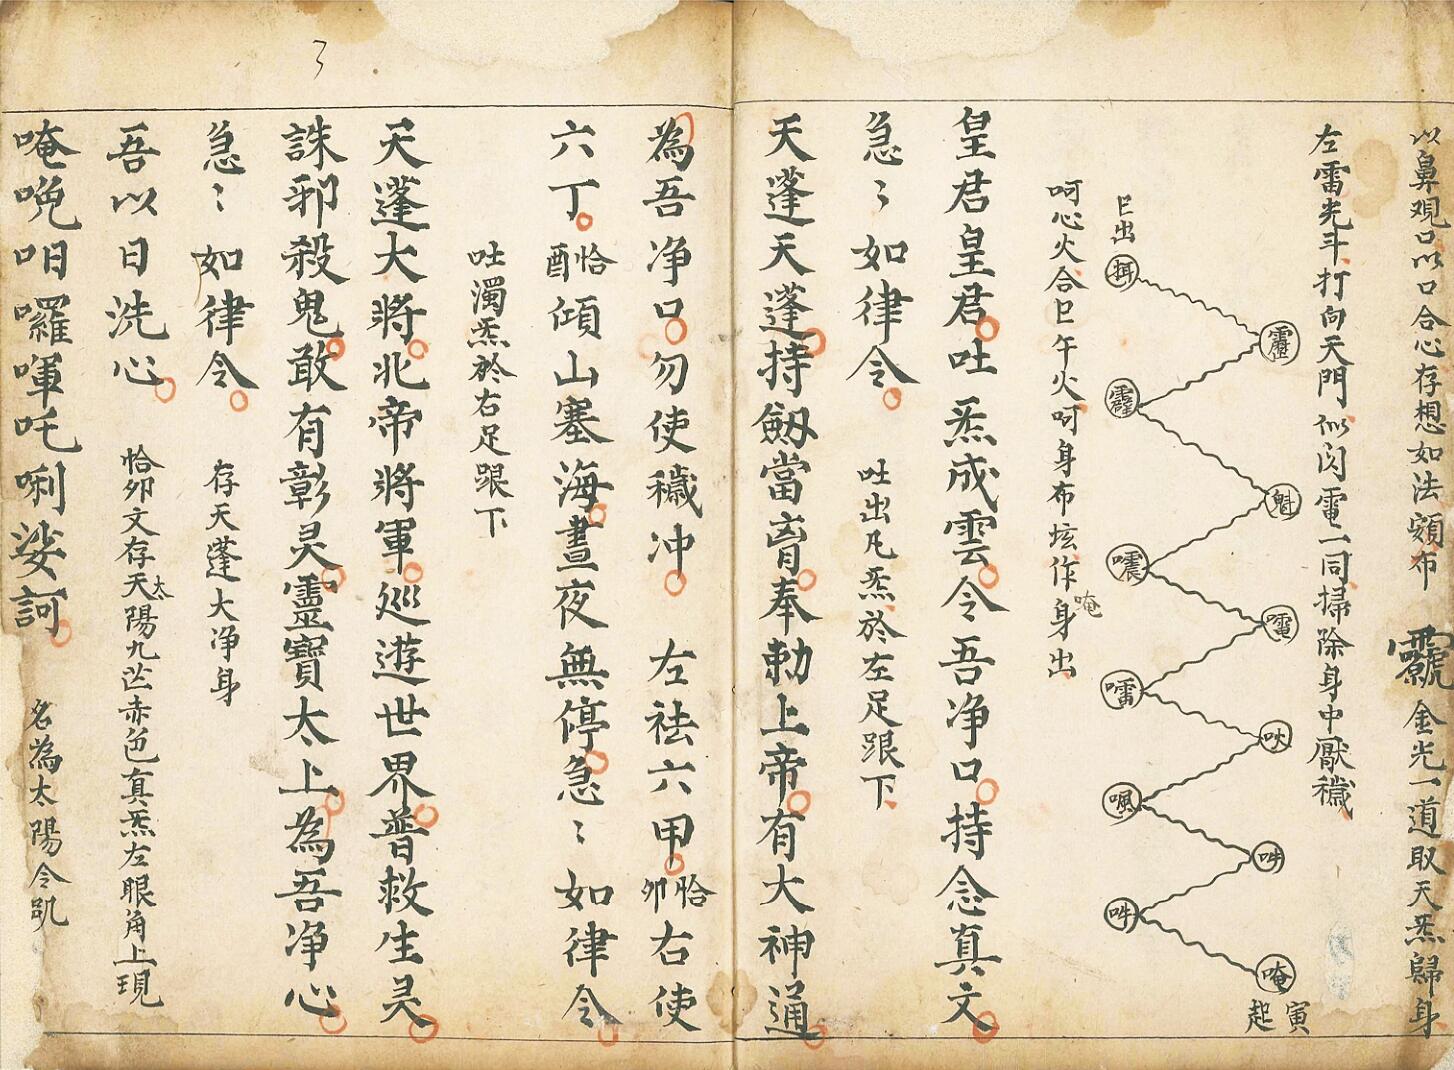 以鼻觀口以口合心存想如法頞布 金光一道取天炁歸身
左雷光斗打向天門似閃電一同掃除身中厭穢
寅起
唵
吽
吽
吙
𠹃
嚁
魁
巳出
呵心火合巳午火呵身布垓作唵身出
皇君皇君吐炁成雲令吾净口持念真文
急〻如律令 吐出凡炁於左足跟下
天蓬天蓬持劒當育奉勅上帝有大神通
為吾净口勿使穢冲 左袪六甲恰卯右使
六丁恰酉傾山塞海晝夜無停急〻如律令
吐濁炁於右足跟下
天蓬大將北帝將軍巡遊世界普救生灵
誅邪殺鬼敢有彰灵靈寶太上為吾净心
急〻如律令 存天蓬大净身
吾以日洗心 恰卯文存天太陽九芒赤色真炁左眼角上現
唵唲呬囉㖇吒唎娑訶 名為太陽令